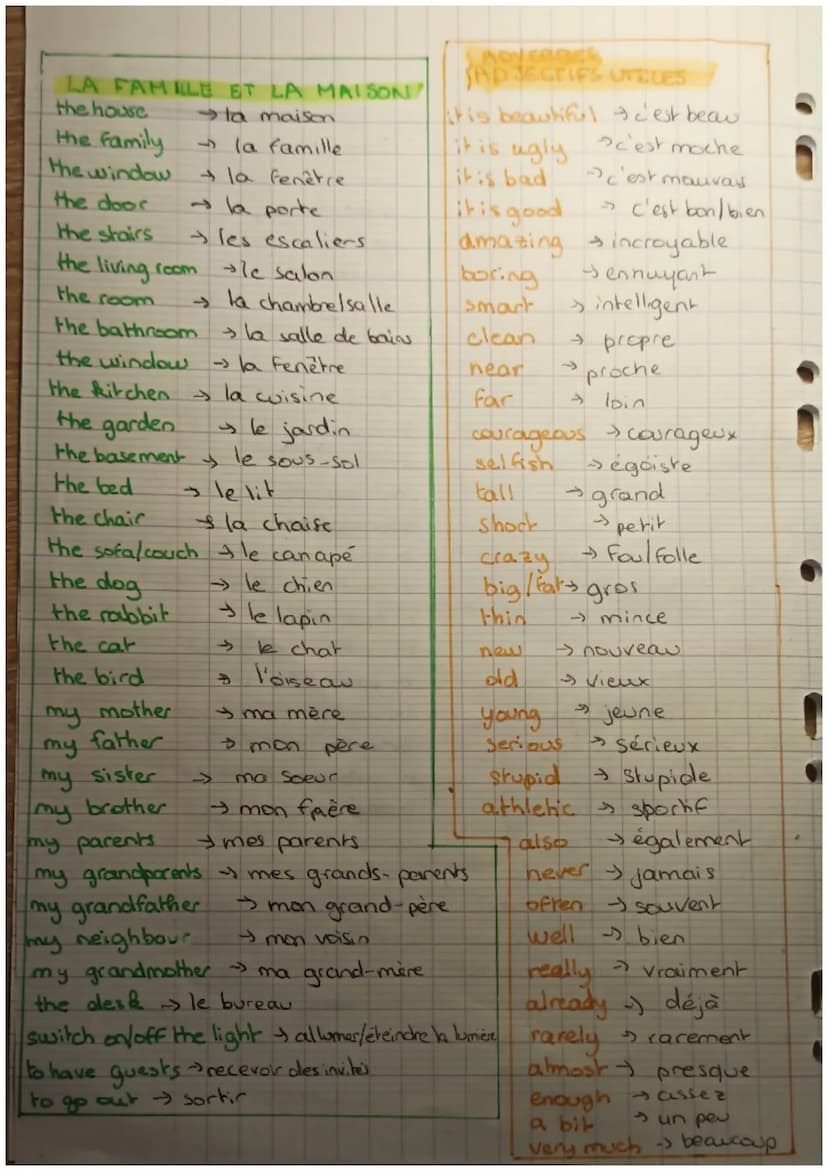 LA FAMILLE ET LA MAISON
the house → la maison
the family → la famille
the window → la fenêtre
the door → la porte
the stairs → les escaliers
the living room → le salon
the room → la chambre/salle
the bathroom → la salle de bain
the window → la fenêtre
the kitchen → la cuisine
the garden → le jardin
the basement → le sous-sol
the bed → le lit
the chair → la chaise
the sofa/couch → le canapé
the dog → le chien
the rabbit → le lapin
the cat → le chat
the bird → l'oiseau
my mother → ma mère
my father → mon père
my sister → ma soeur
my brother → mon frère
my parents → mes parents
my grandparents → mes grands-parents
my grandfather → mon grand-père
my neighbour → mon voisin
my grandmother → ma grand-mère
the desk → le bureau
switch on/off the light → allumer/éteindre la lumière
to have guests → recevoir des invités
to go out → sortir
ADVERBES
ADJECTIFS UTILES
it is beautiful → c'est beau
it is ugly → c'est moche
it is bad → c'est mauvais
it is good → c'est bon/bien
amazing → incroyable
boring → ennuyant
smart → intelligent
clean → propre
near → proche
far → loin
courageous → courageux
selfish → égoïste
tall → grand
short → petit
crazy → fou/folle
big/fat → gros
thin → mince
new → nouveau
old → vieux
young → jeune
serious → sérieux
stupid → stupide
athletic → sportif
also → également
never → jamais
often → souvent
well → bien
really → vraiment
already → déjà
rarely → rarement
almost → presque
enough → assez
a bit → un peu
very much → beaucoup